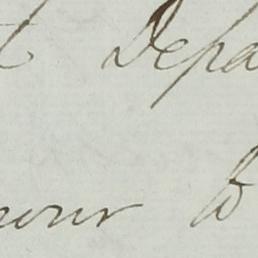 t Depa
nour b